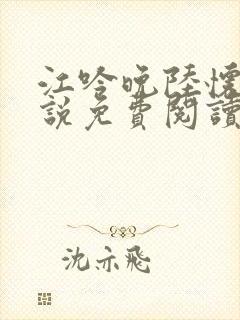 江吟晚陸懷
說免費閱讀
沈亦飛